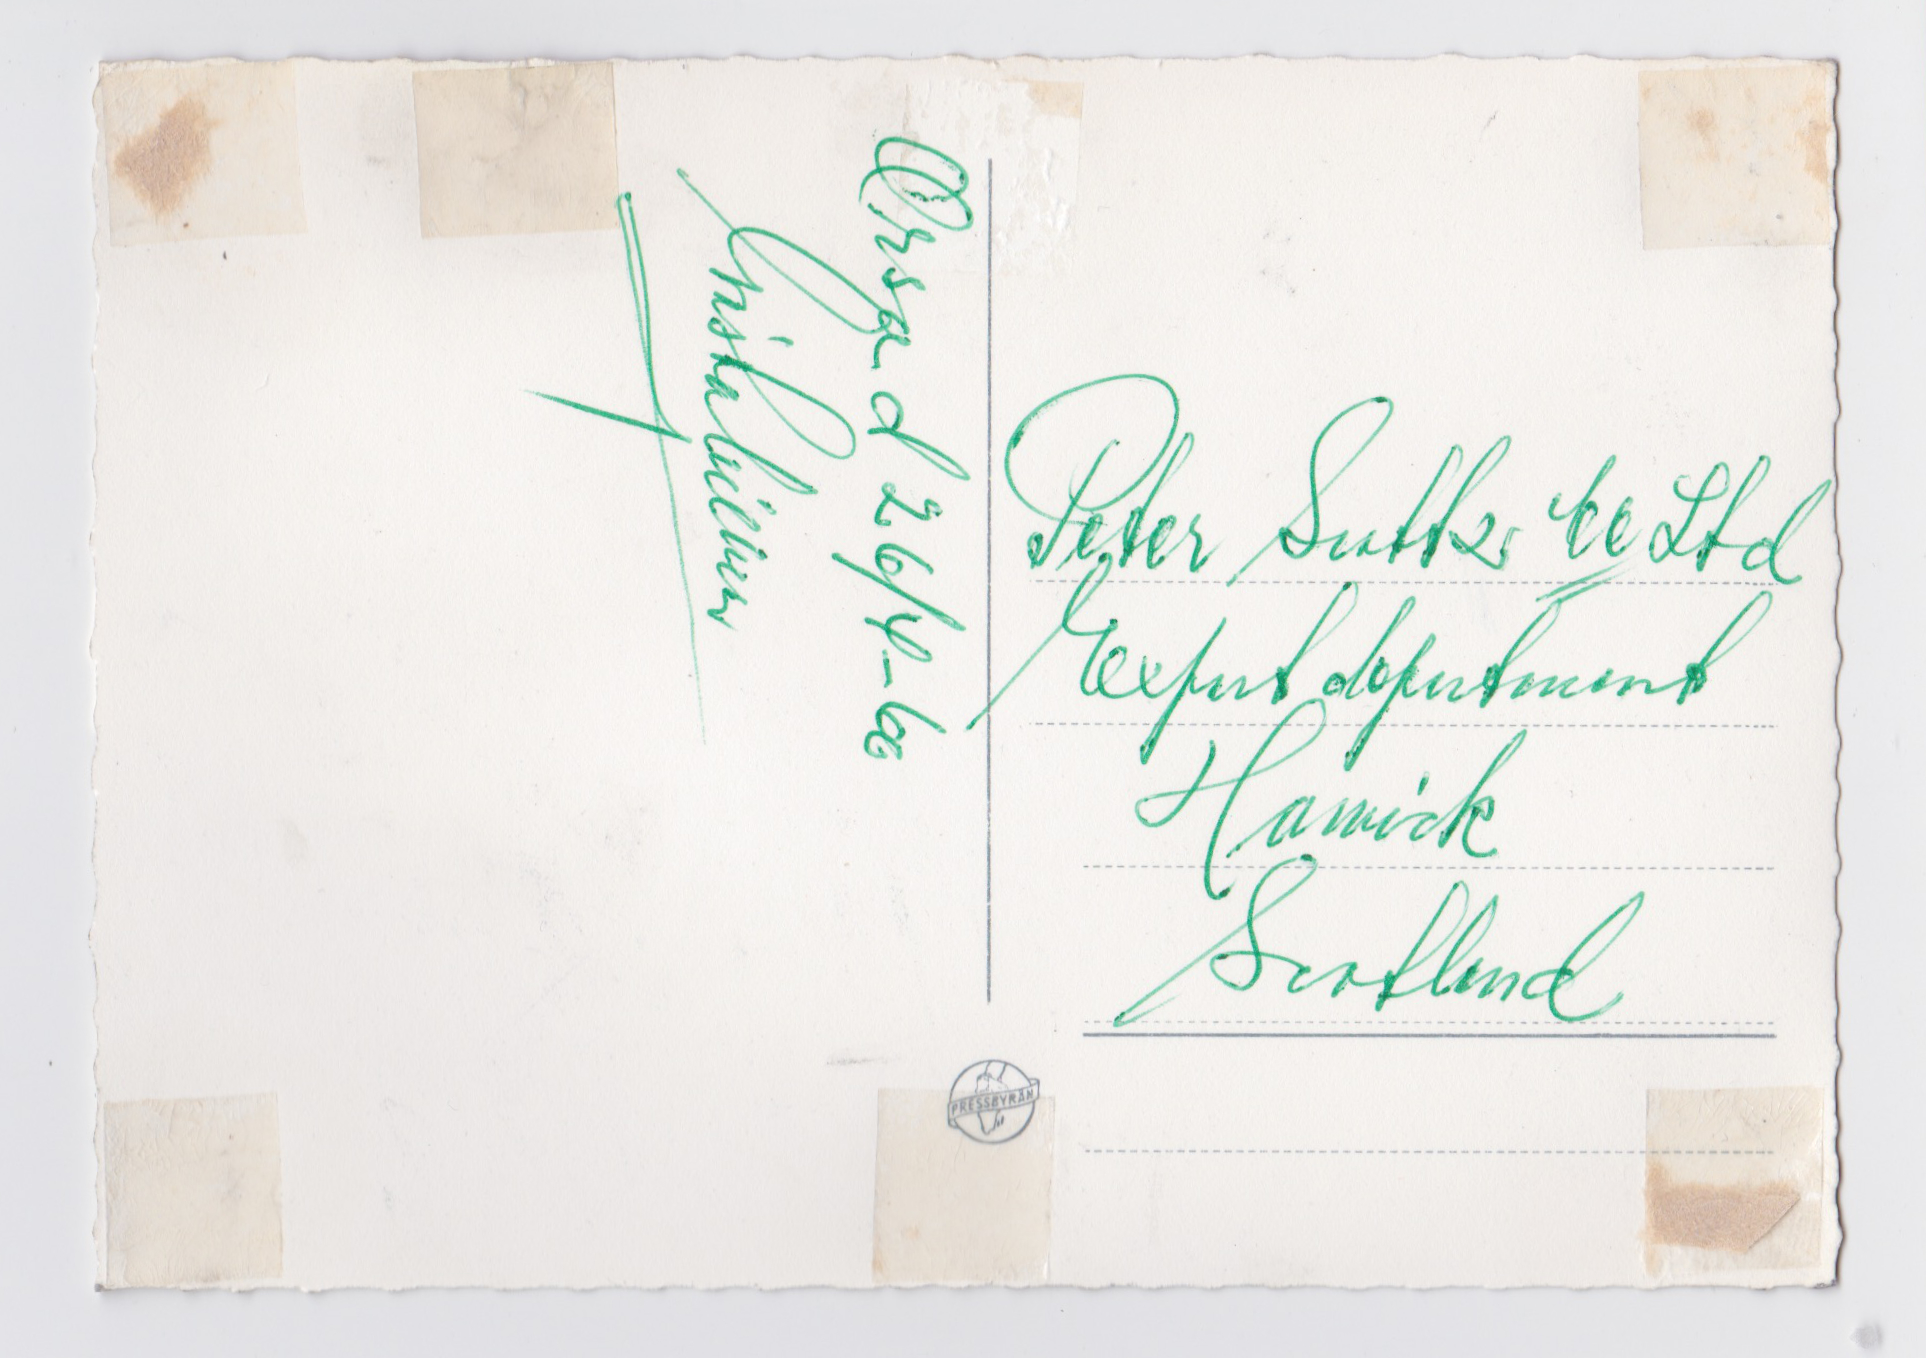 Orsa d 26/4-60
Peter Scott & Co Ltd
Export department
Hawick
Scotland
PRESSBYRÅN